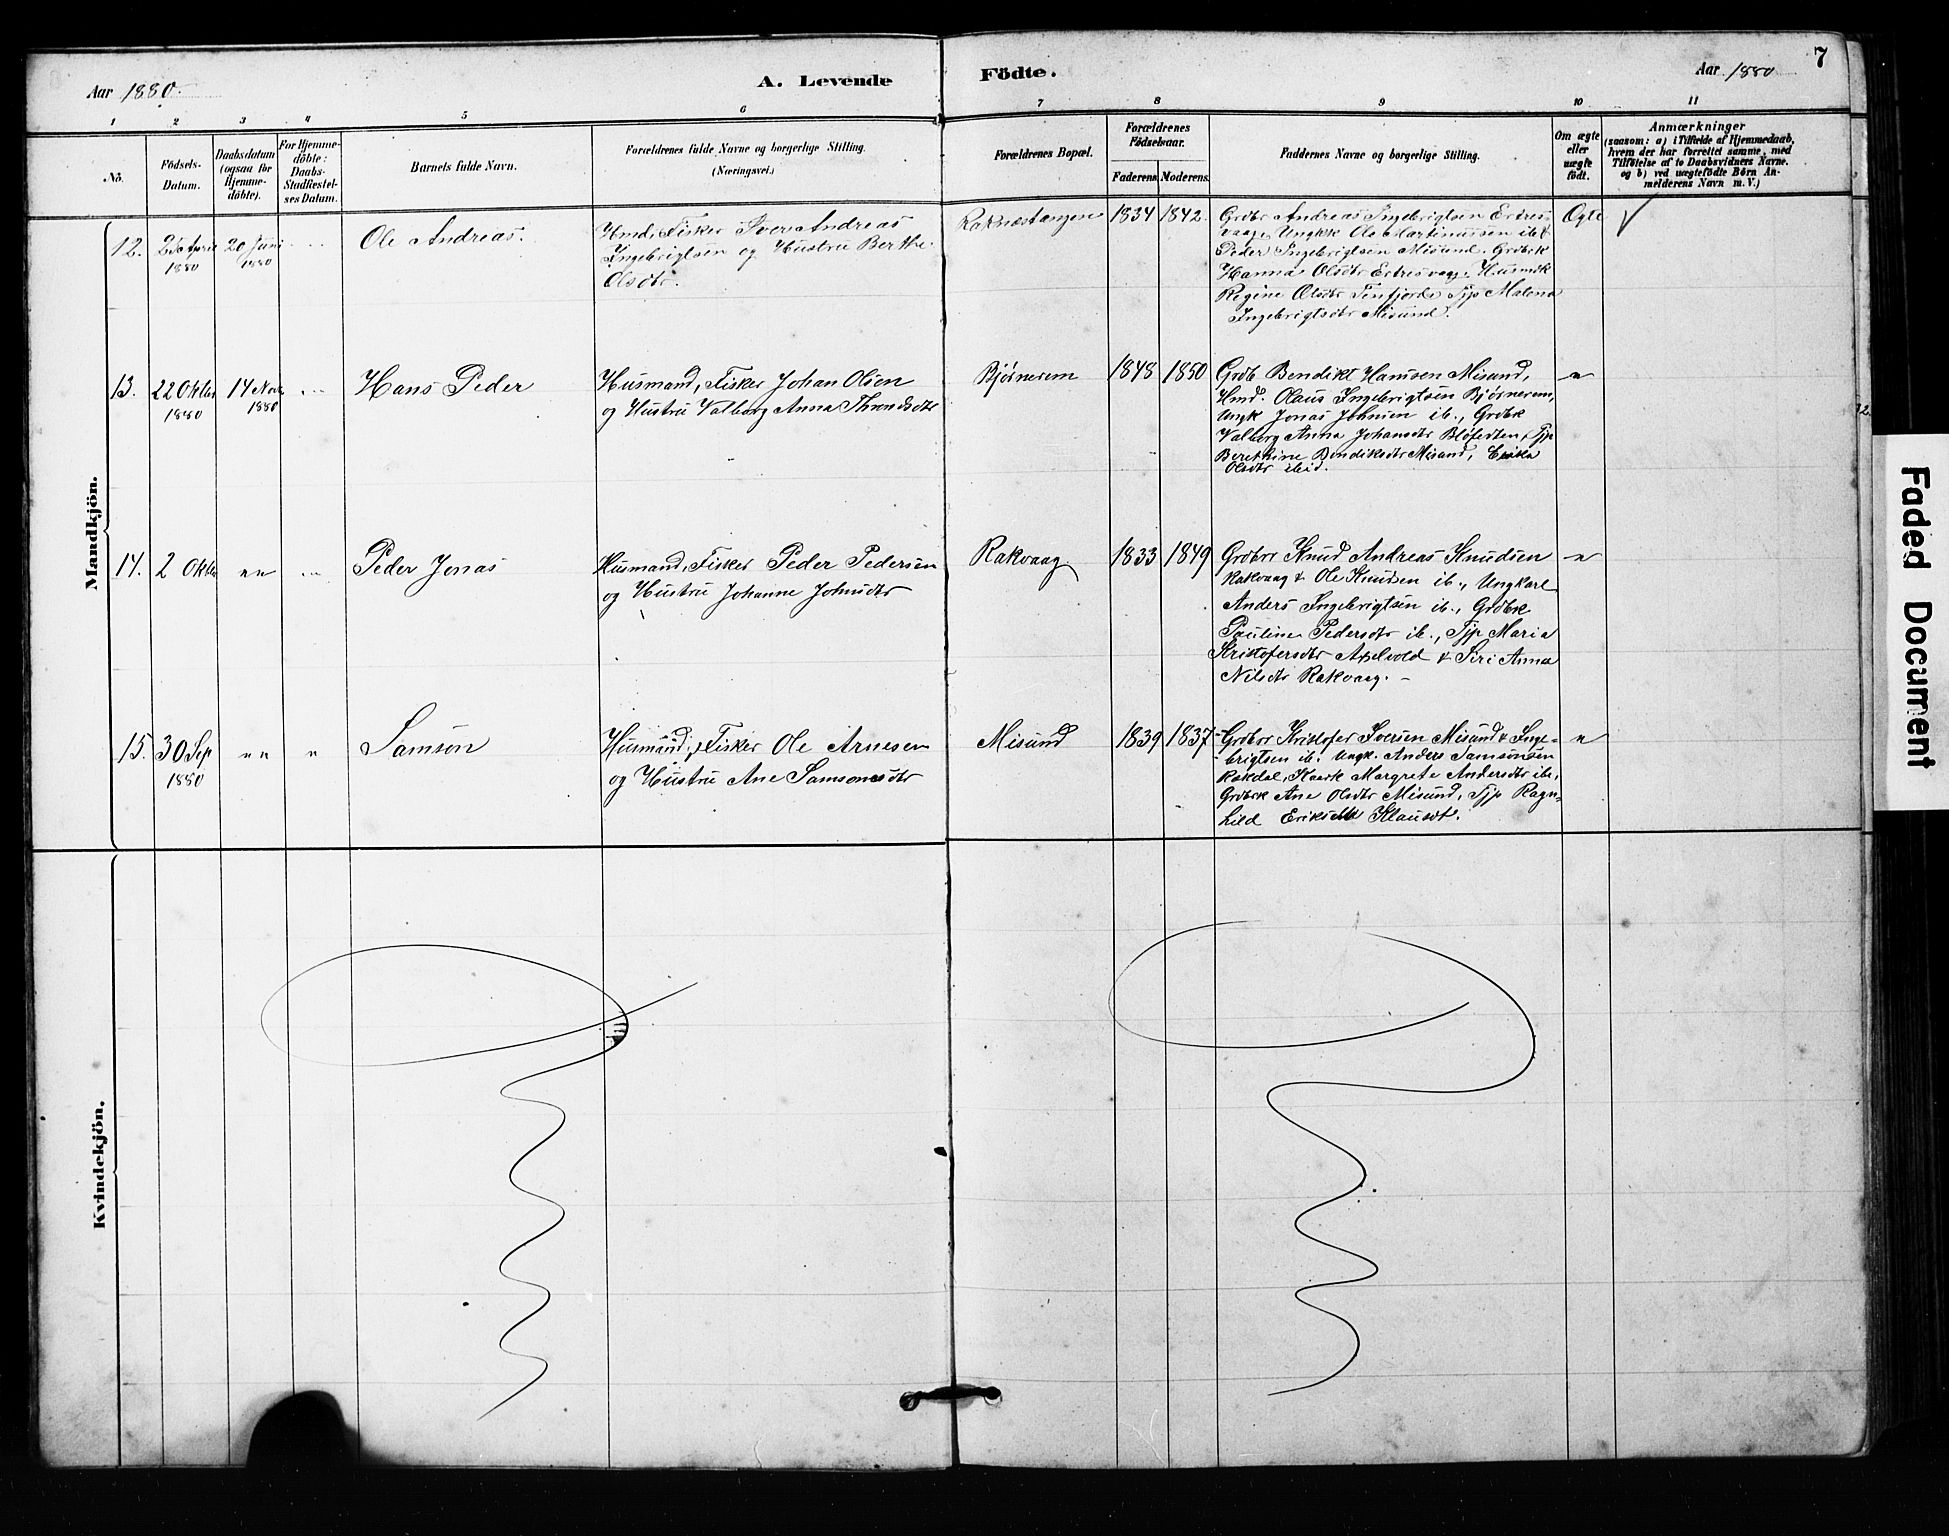 7
Aar 1880.
A. Levende
Födte.
Aar 1880
1 2 3 4 5 6 7 8 9 10 11
No.
Födsels-
Datum.
Daabsdatum
(ogsaa for
Hjemme-
döbte).
For Hjemme-
döbte:
Daabs-
Stadfæstel-
ses Datum.
Barnets fulde Navn.
Forældrenes fulde Navne og borgerlige Stilling.
(Næringsvei.)
Forældrenes Bopæl.
Forældrenes
Födselsaar.
Faderens. Moderens.
Faddernes Navne og borgerlige Stilling.
Om ægte
eller
uægte
födt.
Anmærkninger
(saasom: a) i Tilfælde af Hjemmedaab,
hvem der har forrettet samme, med
Tilföielse af to Daabsvidners Navne.
og b) ved uægtefödte Börn An-
melderens Navn m. V.)
Mandkjön.
12.
25 April
1880
20 Juni
1880
Ole Andreas.
Hmd, Fisker Iver Andreas
Ingebrigtsen og Hustru Berthe
Olsdtr.
Raknestangen
1834 1842.
Grdbr Andreas Ingebrigtsen Ertres-
vaag, Ungkk Ole Martinussen ib &
Peder Ingebrigtsen Misund. Grdbrk
Hanna Olsdtr Ertresvaag. Husmk
Regine Olsdtr Tenfjorde Pjp Malena
Ingebrigtsdtr Misund.
Ægte
13.
22 Oktbr
1880
14 Nov.
1880
Hans Peder
Husmand, Fisker Johan Olsen
og Hustru Valborg Anna Throndsdtr
Bjørnerem
1848 1850
Grdb Bendikt Hansen Misund,
Hmd. Olaus Ingebrigtsen Bjørnerem,
Ungk Jonas Johnsen ib., Grdbrk
Valborg Anna Johansdtr Pjp
Berethine Bendiksdtr Misund,
Olsdtr ibid.
"
14.
2 Oktbr
" "
Peder Jonas
Husmand, Fisker Peder Pedersen
og Hustru Johanne Johnsdtr
Rakvaag
1833 1849
Grdbr Knud Andreas Knudsen
Rakvaag & Ole Knudsen ib., Ungkarl
Anders Ingebrigtsen ib., Grdbrk
Pauline Pedersdtr ib., Pjp Maria
Kristofersdtr & Siri Anna
Nilsdtr Rakvaag. -
"
15.
30 Sep
1880
" "
"
Samson
Husmand, Fisker Ole Arnesen
og Hustru Ane Samsonsdtr
Misund
1839 1837
Grdbr Kristofer Iversen Misund & Inge-
brigtsen ib. Ungk. Anders Samsonsen
Rakdal, Kaark Margrete Andersdtr ib.,
Grdbrk Ane Olsdtr Misund, Pjp Ragn-
hild
"
Kvindekjön.
Faded Document